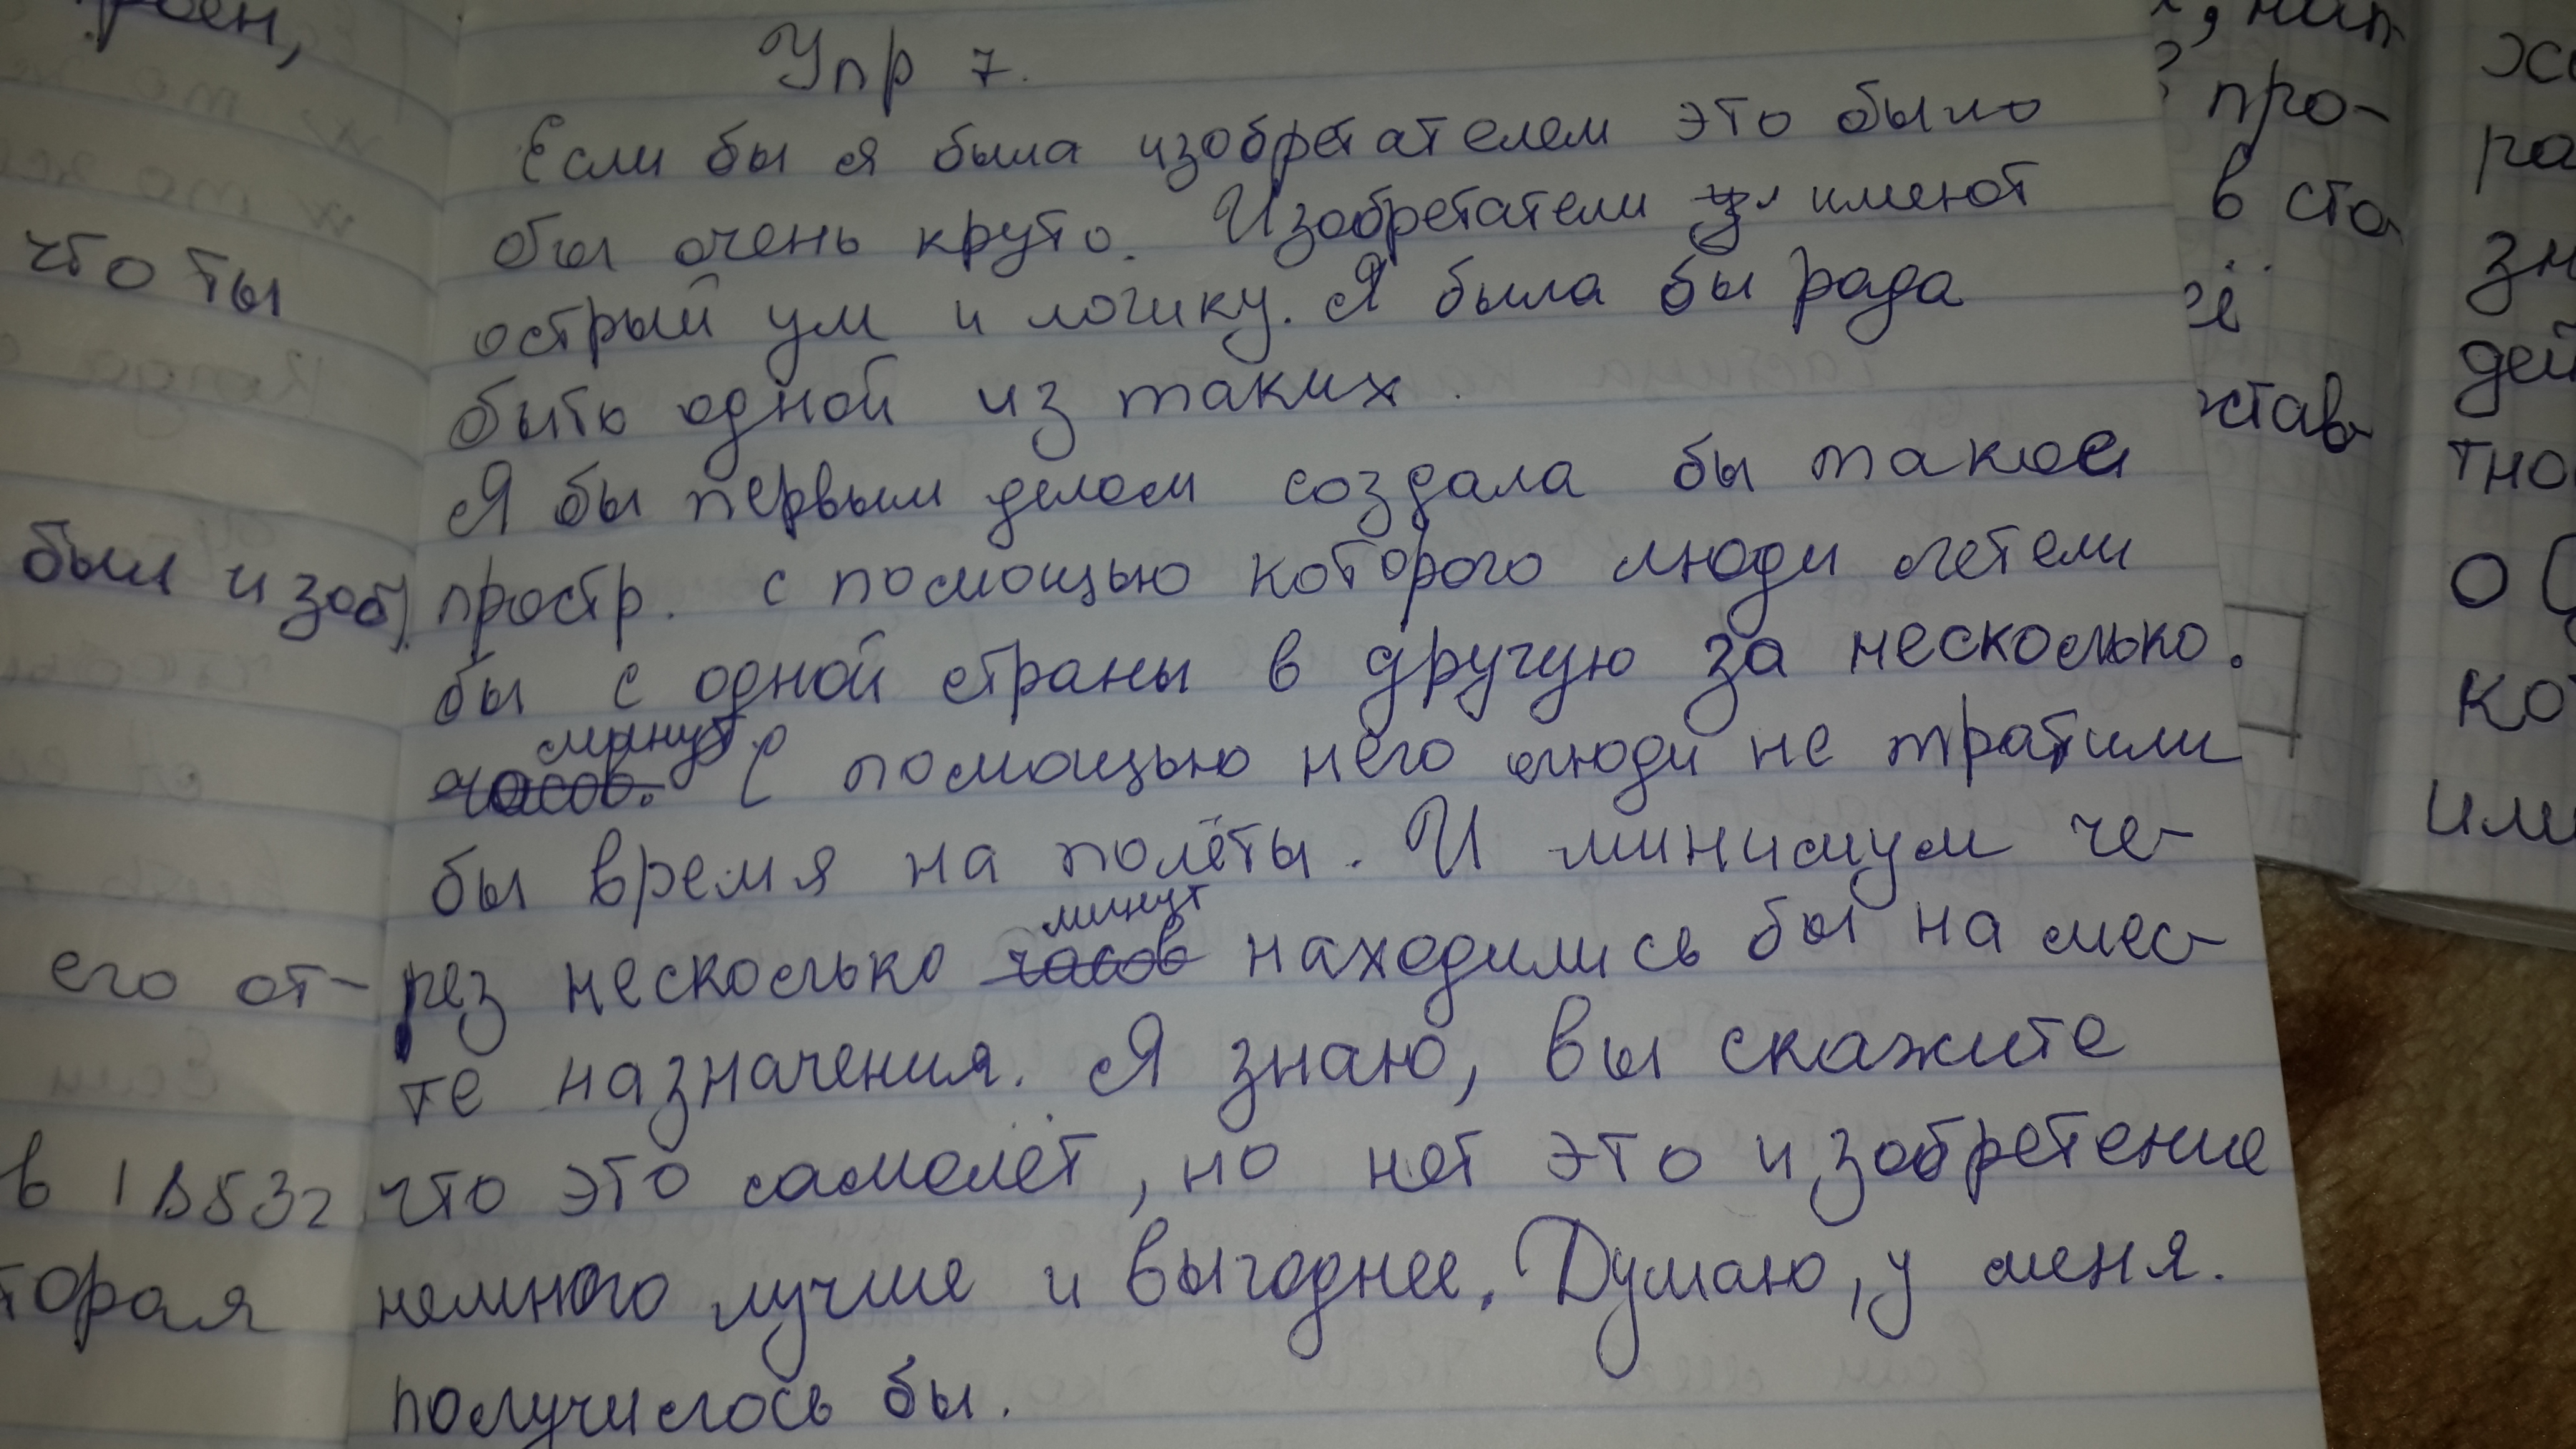 Упр 7.
Если бы я была изобретателем это было
бы очень круто. Изобретатели имеют
острый ум и логику. Я была бы рада
быть одной из таких.
Я бы первым делом создала бы такое
простр. с помощью которого люди летели
бы с одной страны в другую за несколько.
минут
часов. С помощью него люди не тратили
бы время на полёты. И минимум че-
минут
рез несколько часов находились бы на мес-
те назначения. Я знаю, вы скажите
что это самолёт, но нет это изобретение
немного лучше и выгоднее. Думаю, у меня.
получилось бы.
что ты
был изоб
его от-
в 1853г
торая
про-
в ста
став-
или